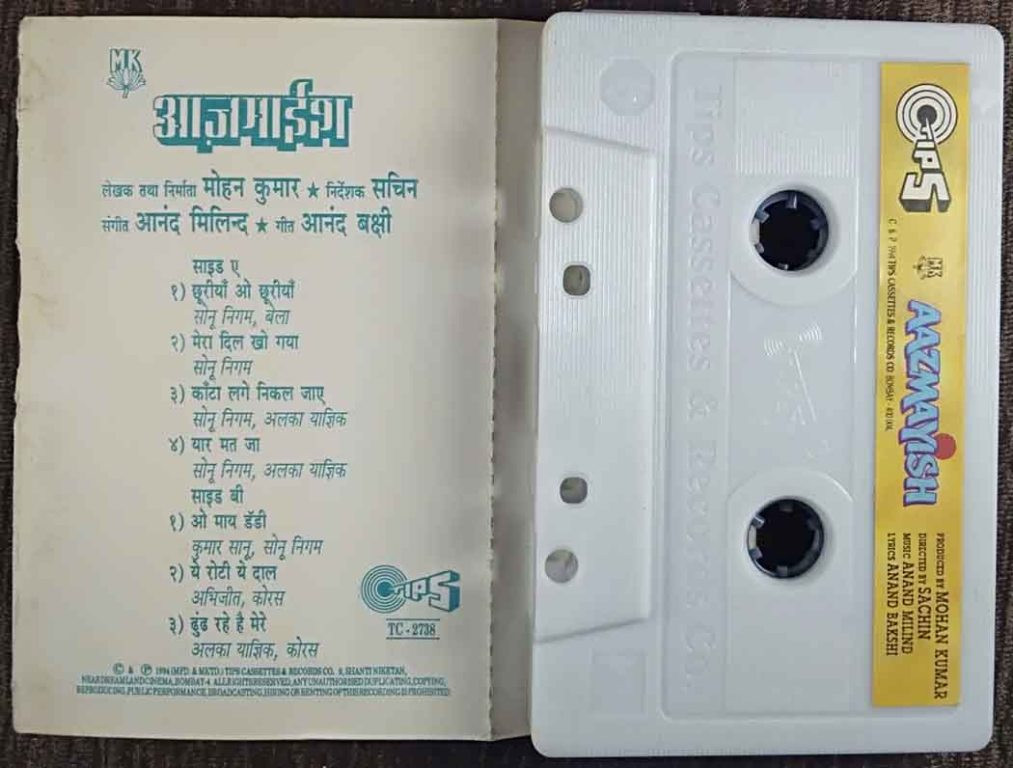 MK
आज़माईश
लेखक तथा निर्माता मोहन कुमार ★ निर्देशक सचिन
संगीत आनंद मिलिन्द ★ गीत आनंद बक्षी
साइड ए
१) छूरीयाँ ओ छूरीयाँ
सोनू निगम, बेला
२) मेरा दिल खो गया
सोनू निगम
३) काँटा लगे निकल जाए
सोनू निगम, अलका याज्ञिक
४) यार मत जा
सोनू निगम, अलका याज्ञिक
साइड बी
१) ओ माय डॅडी
कुमार सानू, सोनू निगम
२) ये रोटी ये दाल
अभिजीत, कोरस
३) ढुंढ रहे है मेरे
अलका याज्ञिक, कोरस
TIPS
TC-2738
© & ℗ 1994 (MFD. & MKTD.) TIPS CASSETTES & RECORDS CO. 9, SHANTI NIKETAN,
NEAR DREAMLAND CINEMA, BOMBAY-4. ALL RIGHTS RESERVED, ANY UNAUTHORISED DUPLICATING, COPYING,
REPRODUCING, PUBLIC PERFORMANCE, BROADCASTING, HIRING OR RENTING OF THIS RECORDING IS PROHIBITED
Tips Cassettes & Records Co.
TIPS
C & P 1994 TIPS CASSETTES & RECORDS CO BOMBAY - 400 004.
MK
AAZMAYISH
PRODUCED BY MOHAN KUMAR
DIRECTED BY SACHIN
MUSIC ANAND MILIND
LYRICS ANAND BAKSHI